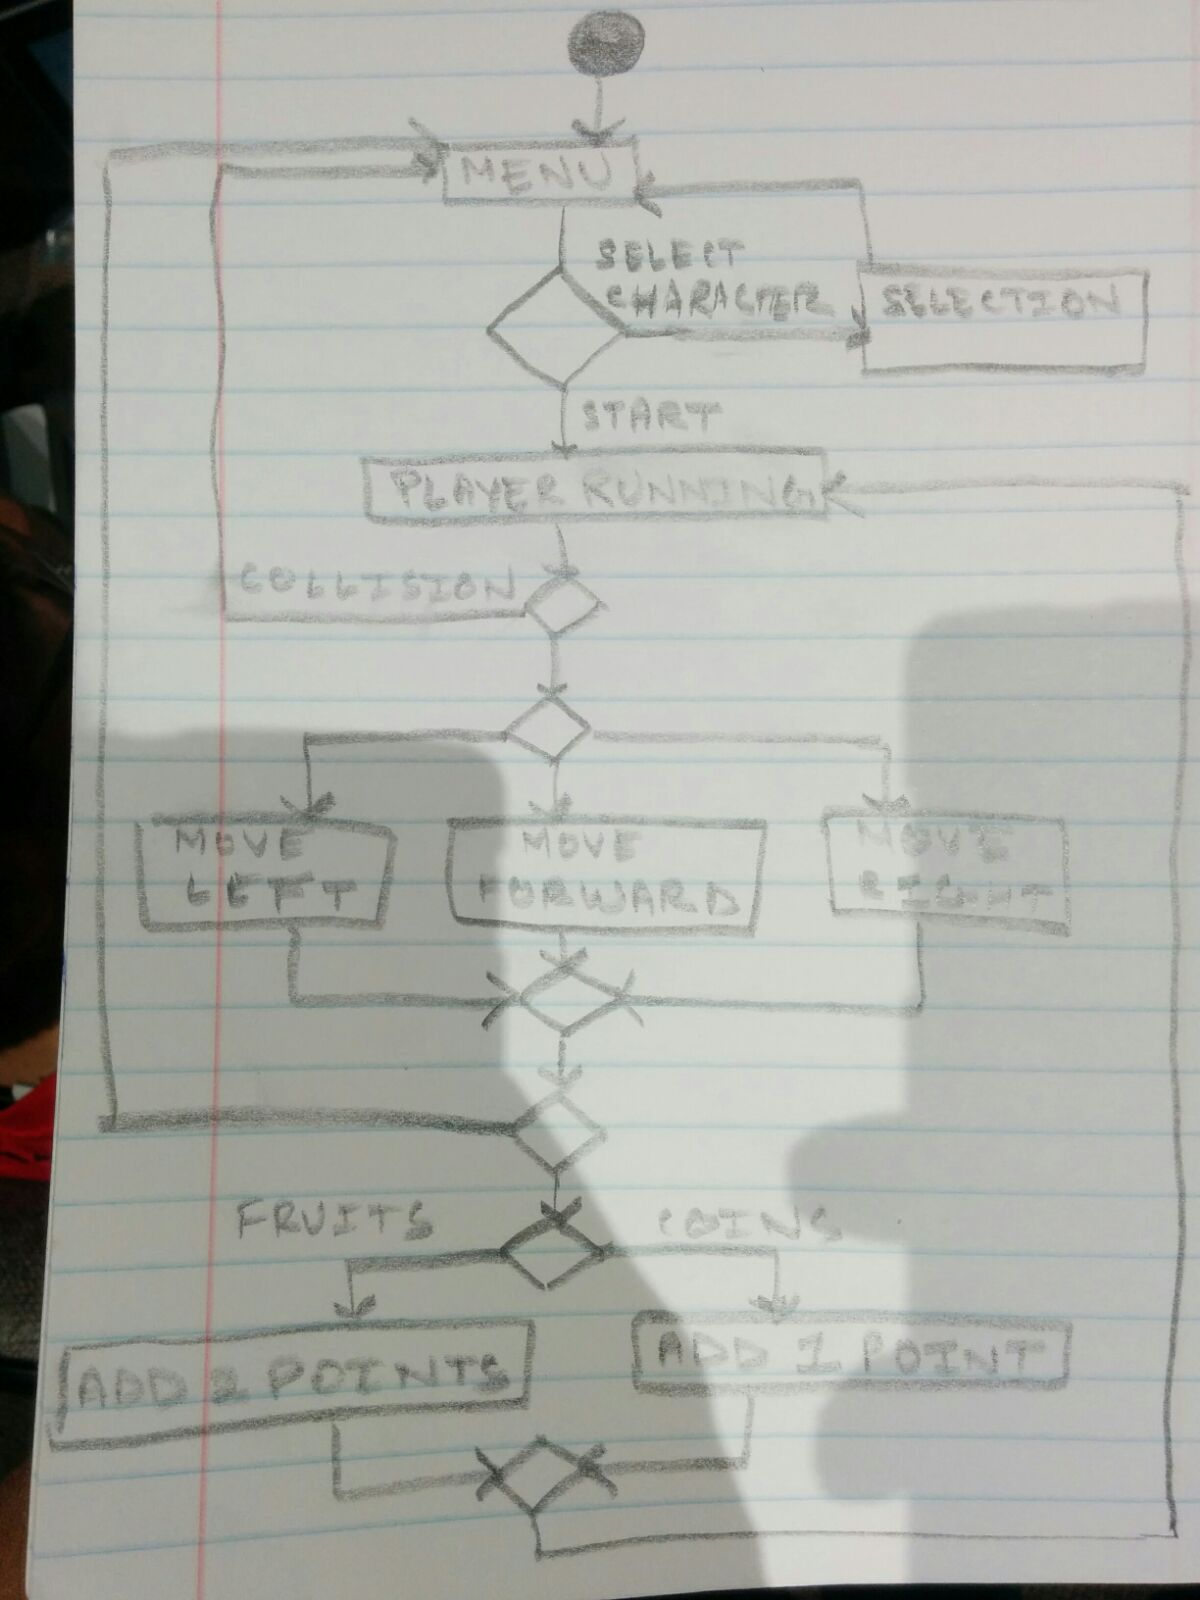 MENU
SELECT
CHARACTER
SELECTION
START
PLAYER RUNNING
COLLISION
MOVE
LEFT
MOVE
FORWARD
MOVE
RIGHT
FRUITS
COINS
ADD 2 POINTS
ADD 1 POINT